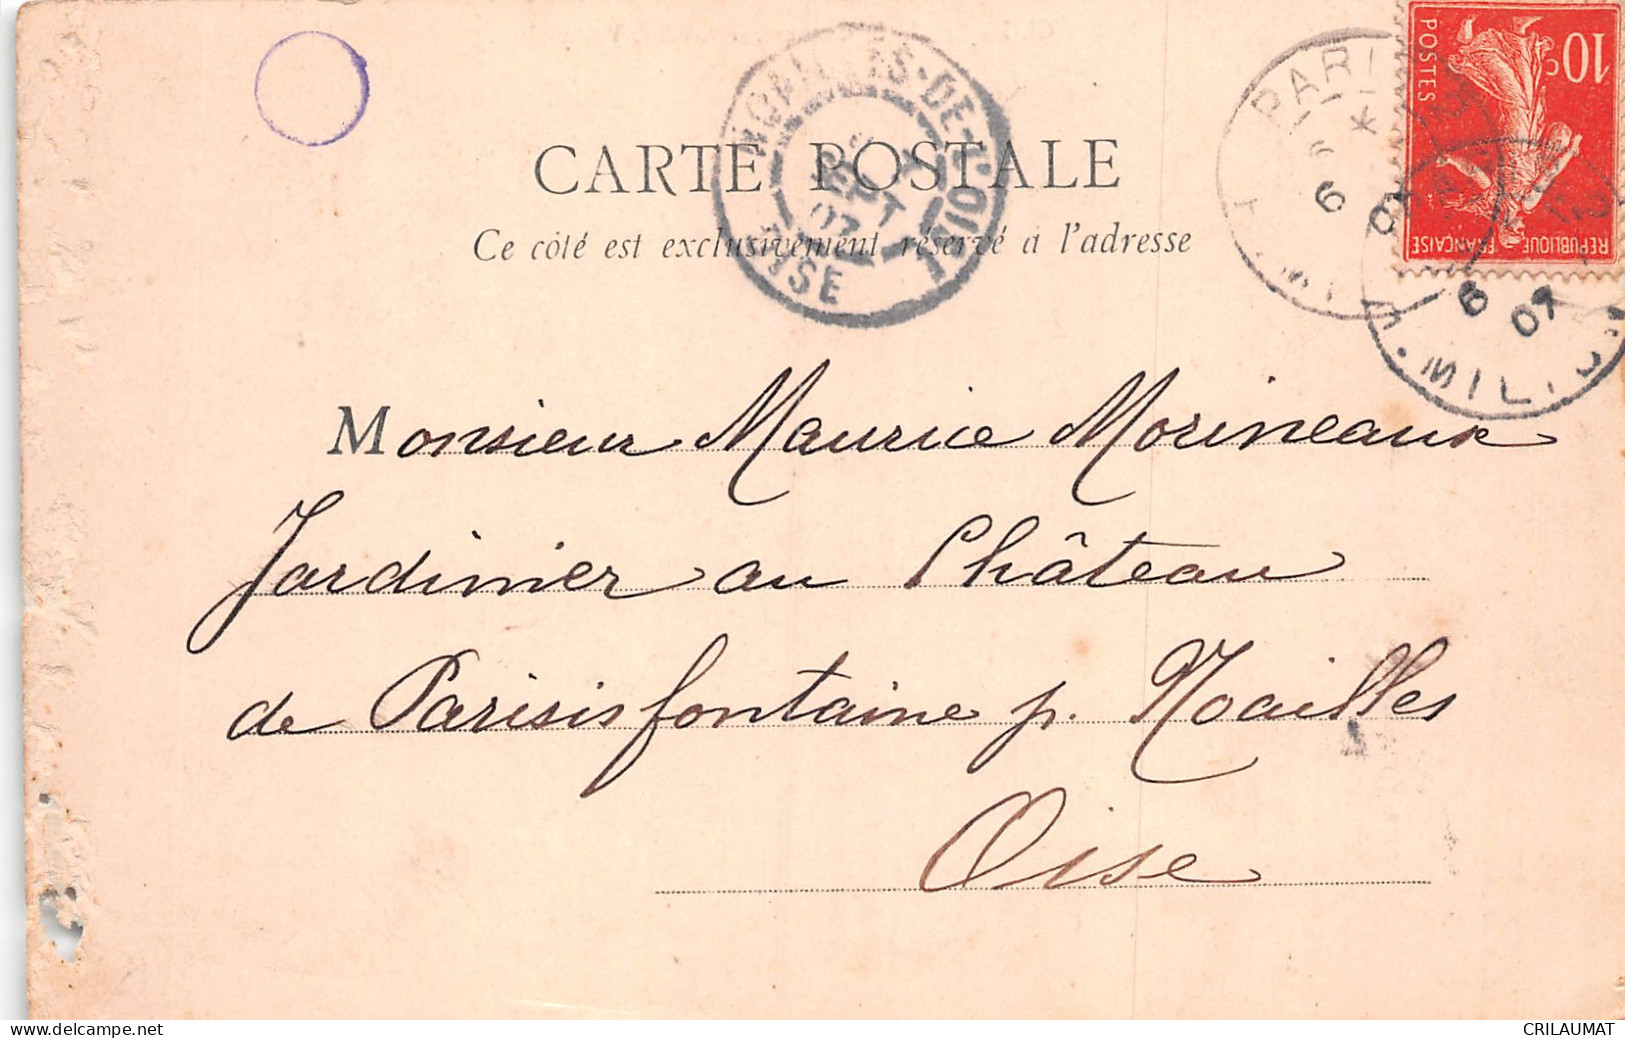 CARTE POSTALE
Ce côté est exclusivement réservé à l'adresse
NOAILLES-DE-L'OISE
SEPT
07
OISE
PARIS
6
6 07
MILTON
10c
POSTES
REPUBLIQUE FRANÇAISE
Monsieur Maurice Morineaux
Jardinier au Château
de Parisisfontaine p. Noailles
Oise
delcampe.net
CRILAUMAT